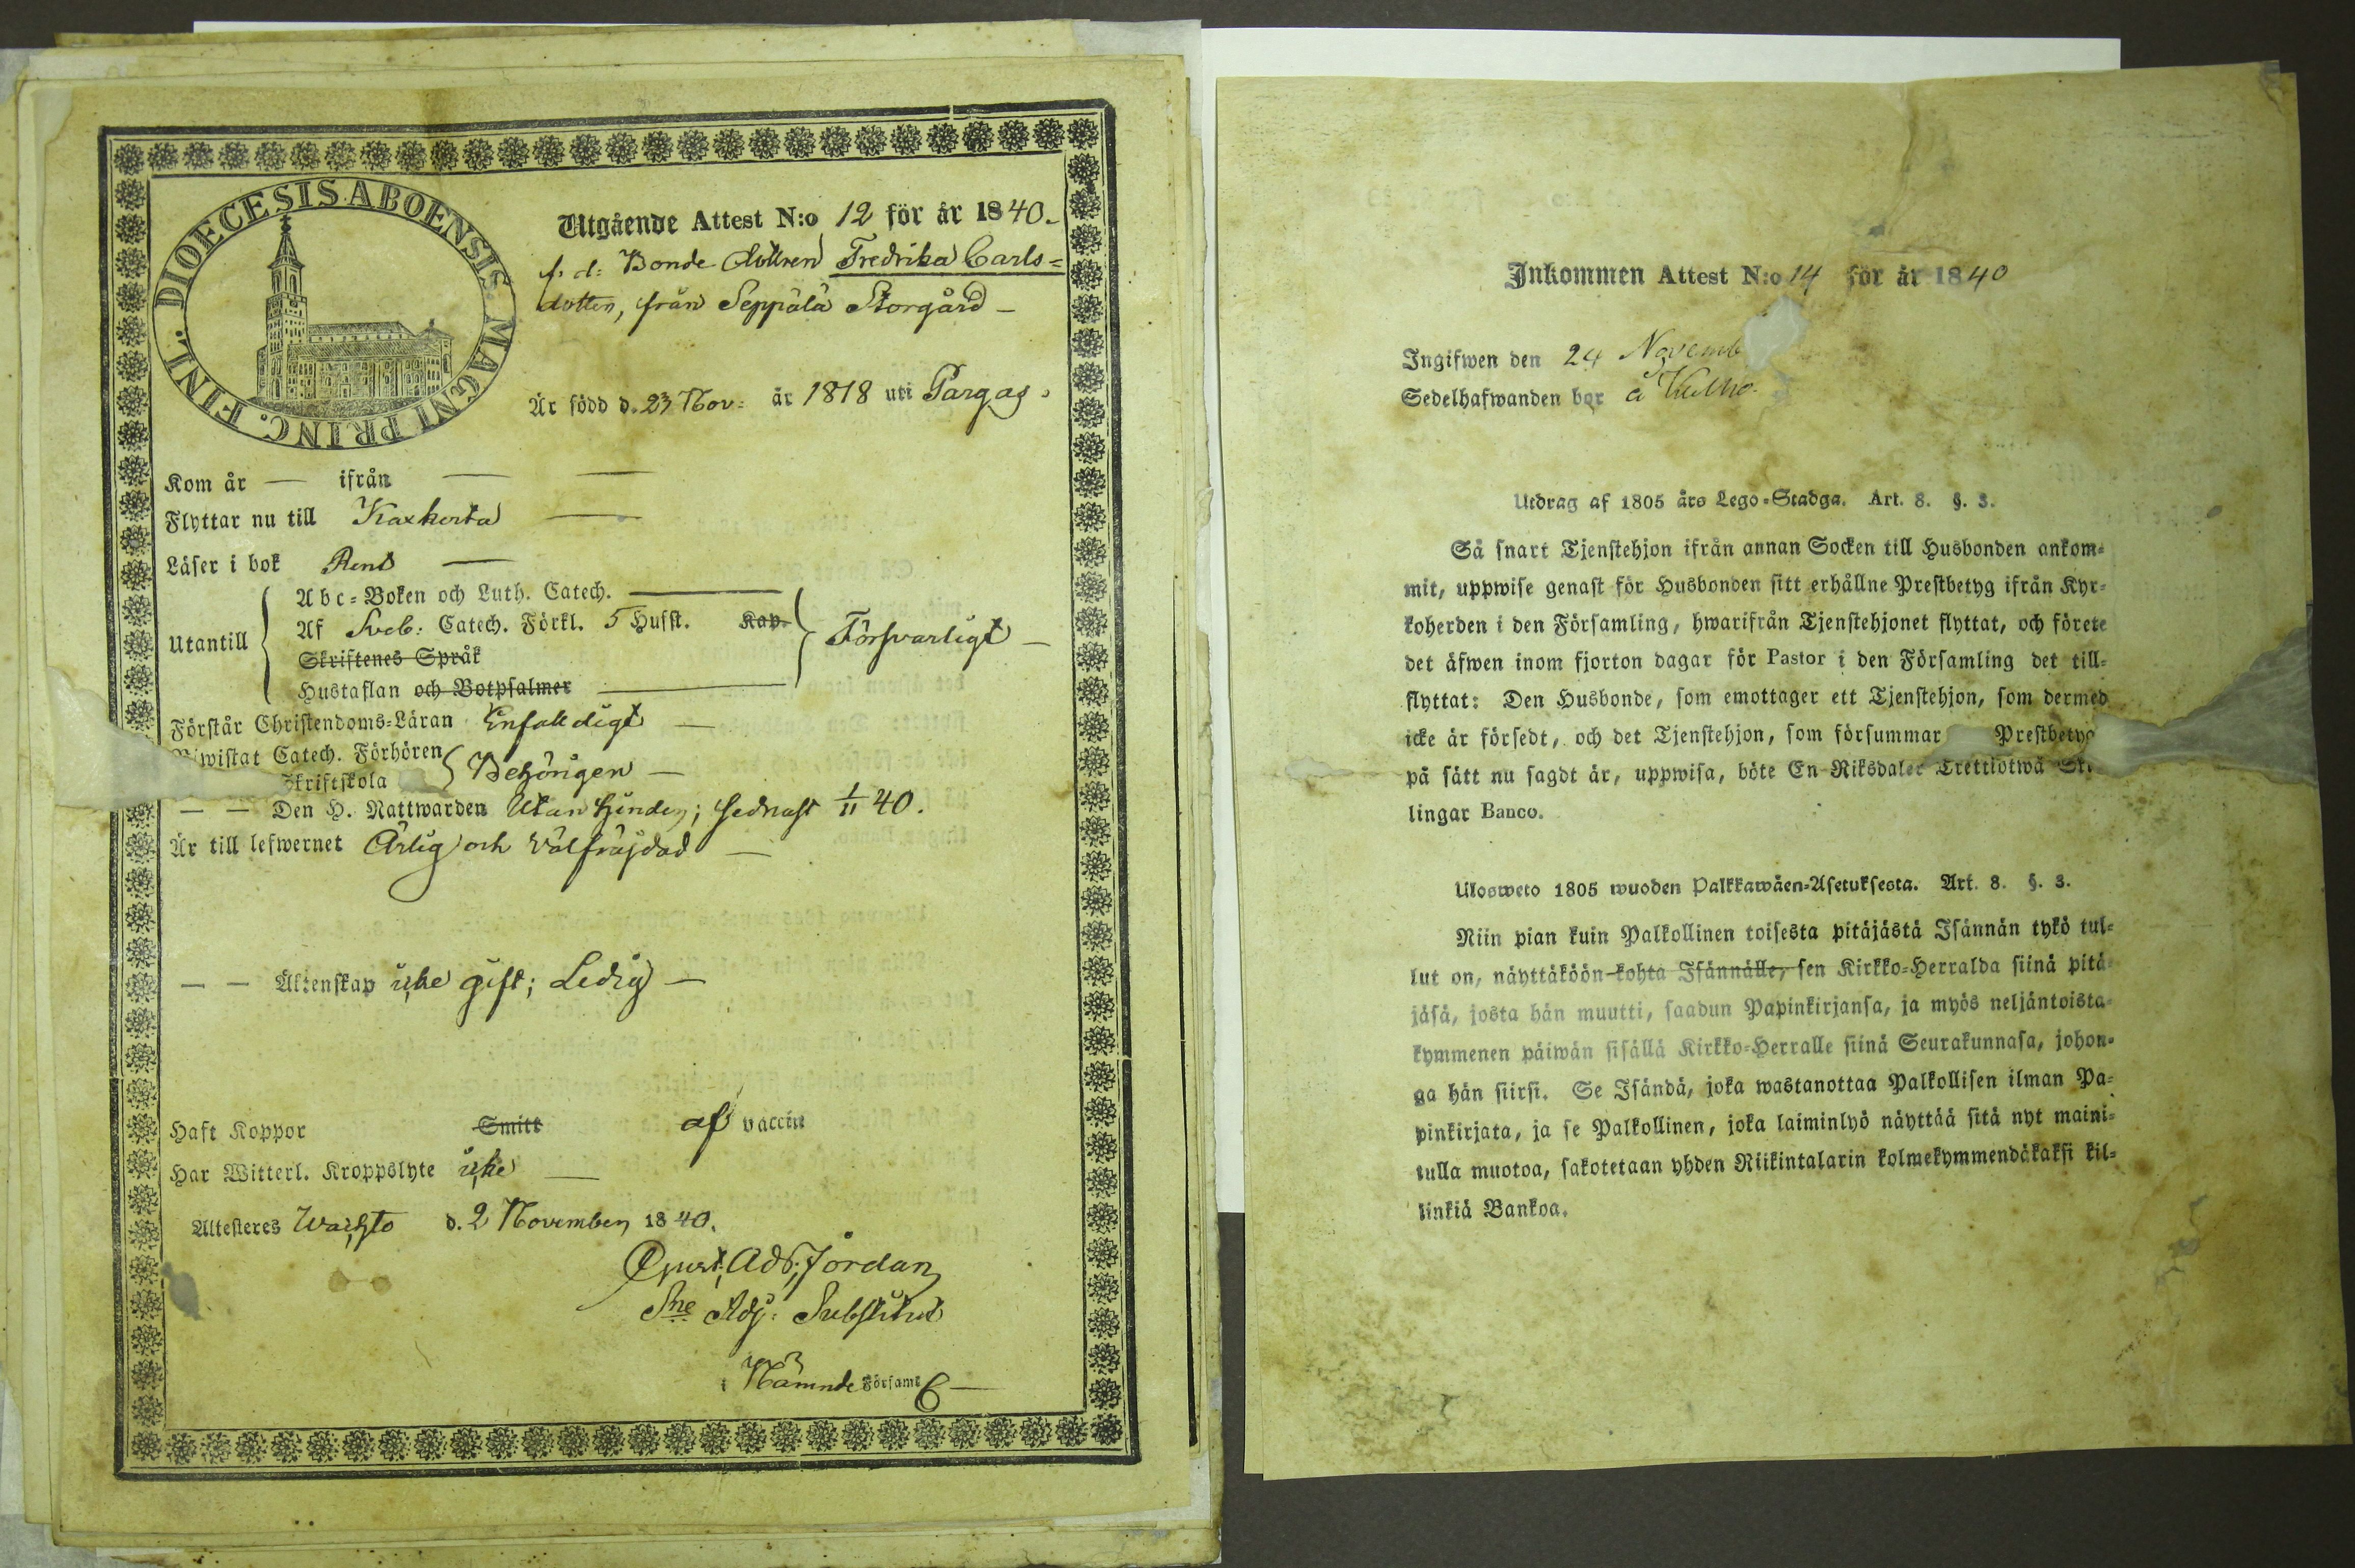 DIOECESIS ABOENSIS. MAGNI PRINC. FINL.
Utgående Attest N:o 12 för år 1840.
f. d. Bonde dottren Fredrika Carls=
dotter, från Seppälä Storgård –
Är född d. 23 Nov: år 1818 uti Pargas.
Kom år — ifrån —
Flyttar nu till Kaxkerta —
Läser i bok Rent —
Utantill
Abc=Boken och Luth. Catech. —
Af Sveb: Catech. Förkl. 5 Hufst. Kap.
Skriftenes Språk
Hustaflan och Botpsalmer —
Försvarligt —
Förstår Christendoms=Läran Enfaldigt —
wistat Catech. Förhören
Skriftskola
Behörigen —
— — Den H. Nattwarden Utan hinder; sednast 1/11 40.
Är till lefwernet Ärlig och välfräjdad —
— — Äktenskap icke gift; Ledig —
Haft Koppor Smitt af vaccin
Har Witterl. Kroppslyte icke —
Attesteres d. 2 November 1840.
Jordan
Sne Adj: Substitut
i Församl
Inkommen Attest N:o 14 för år 1840
Ingifwen den 24 Novemb
Sedelhafwanden bor å
Utdrag af 1805 års Lego=Stadga. Art. 8. §. 3.
Så snart Tjenstehjon ifrån annan Socken till Husbonden ankom=
mit, uppwise genast för Husbonden sitt erhållne Prestbetyg ifrån Kyr=
koherden i den Församling, hwarifrån Tjenstehjonet flyttat, och förete
det äfwen inom fjorton dagar för Pastor i den Församling det till=
flyttat: Den Husbonde, som emottager ett Tjenstehjon, som dermed
icke är försedt, och det Tjenstehjon, som försummar Prestbetyg
på sätt nu sagdt är, uppwisa, böte En Riksdaler Trettiotwå
lingar Banco.
Ulosweto 1805 wuoden Palkkawäen=Asetuksesta. Art. 8. §. 3.
Niin pian kuin Palkollinen toisesta pitäjästä Isännän tykö tul=
lut on, näyttäköön kohta Isännälle, sen Kirkko=Herralda siinä pitä=
jäsä, josta hän muutti, saadun Papinkirjansa, ja myös neljäntoista=
kymmenen päiwän sisällä Kirkko=Herralle siinä Seurakunnasa, johon=
ga hän siirsi. Se Isändä, joka wastanottaa Palkollisen ilman Pa=
pinkirjata, ja se Palkollinen, joka laiminlyö näyttää sitä nyt maini=
tulla muotoa, sakotetaan yhden Riikintalarin kolmekymmendäkaksi kil=
linkiä Bankoa.